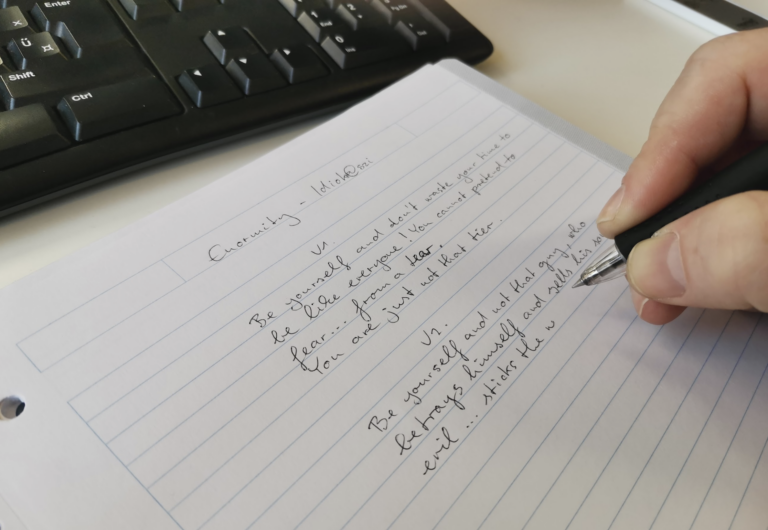 Enter
Ü
Shift
Ctrl
1
2
0
Enormity -
V1.
Be yourself and don't waste your time to
be like everyone! You cannot pretend to
fear... from a tear.
You are just not that tier.
V2.
Be yourself and not that guy, who
betrays himself and sells his
evil ... sticks the w